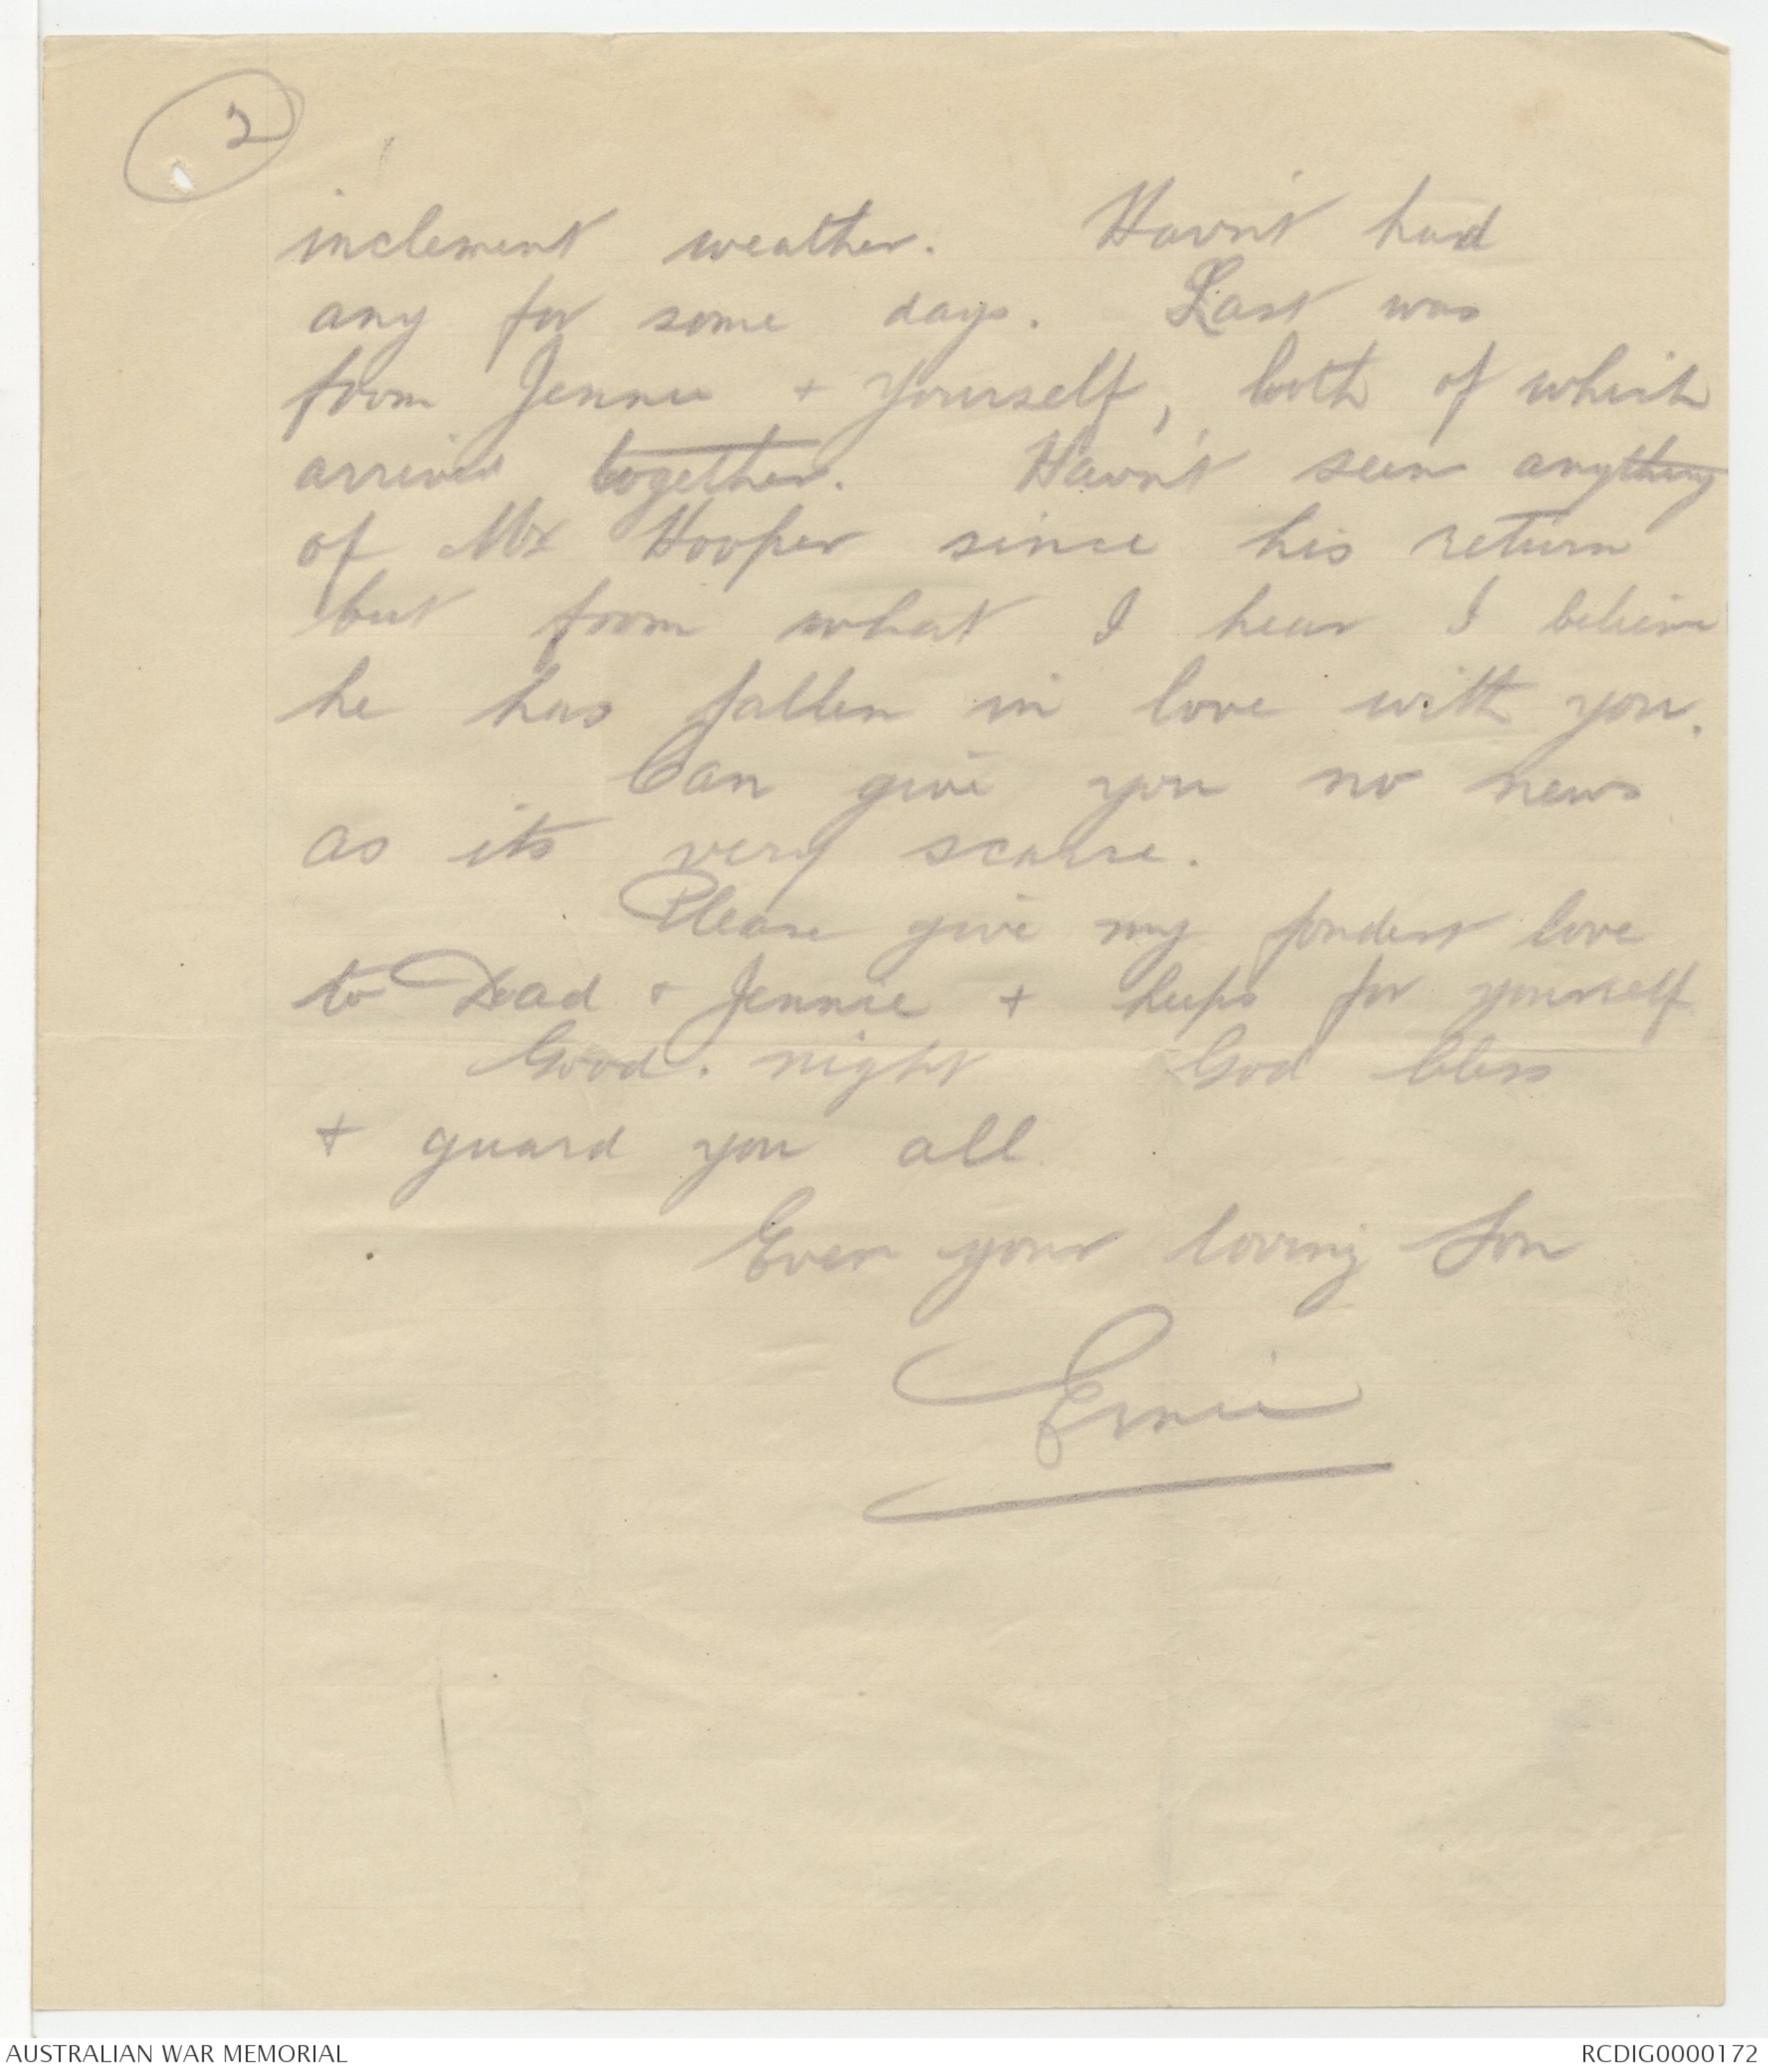 2
inclement weather. Havn't had
any for some days. Last was
from Jennie + Yourself, both of which
arrived together. Havn't seen anything
of Mr Hooper since his return
but from what I hear I believe
he has fallen in love with you.
Can give you no news
as its very scarse.
Please give my fondest love
to Dad + Jennie + heeps for yourself
Good. night God bless
+ guard you all
Ever your loving Son
Ernie
AUSTRALIAN WAR MEMORIAL
RCDIG0000172